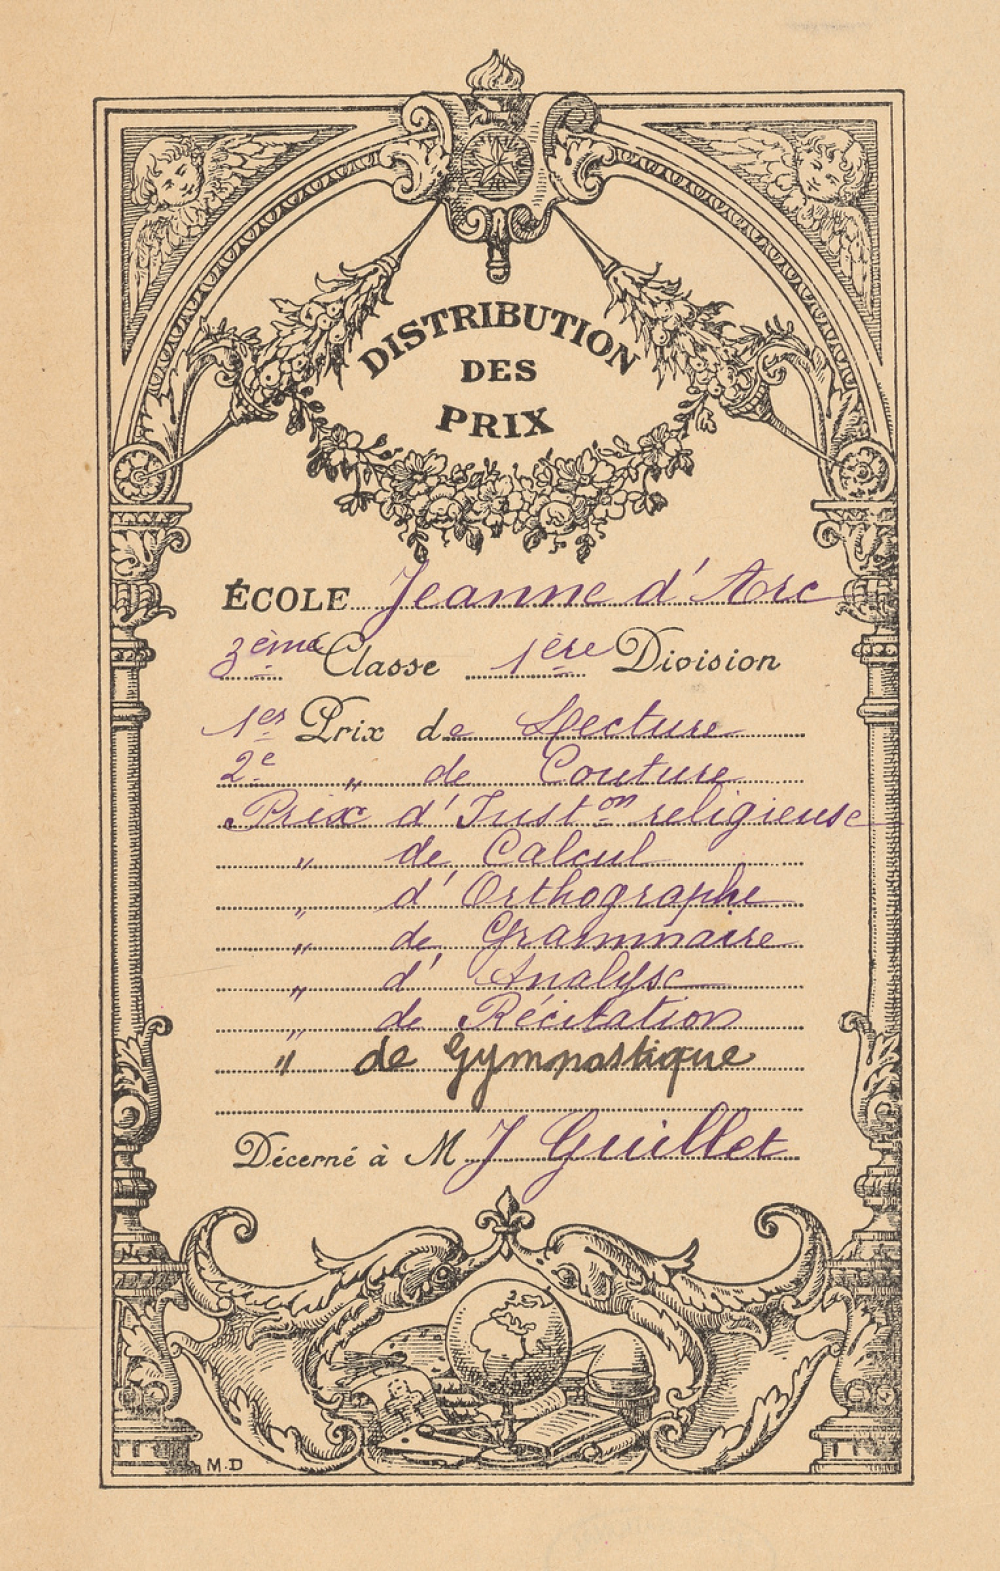 DISTRIBUTION
DES
PRIX
ÉCOLE Jeanne d'Arc
3ème Classe 1ère Division
1er Prix de Lecture
2e " de Couture
Prix d'Inston religieuse
" de Calcul
" d'Orthographe
" de Grammaire
" d'Analyse
" de Récitation
" de Gymnastique
Décerné à M J Guillet
M.D